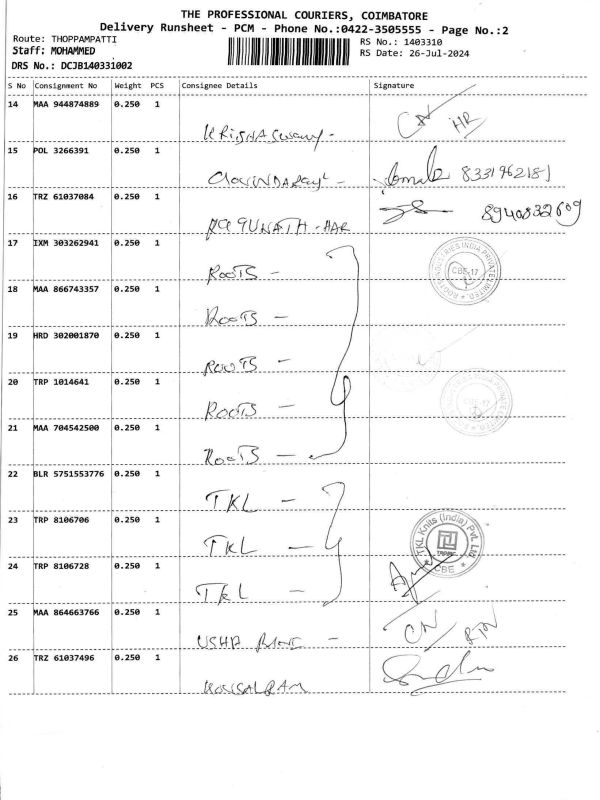 THE PROFESSIONAL COURIERS, COIMBATORE
Delivery Runsheet - PCM - Phone No.:0422-3505555 - Page No.:2
Route: THOPPAMPATTI
RS No.: 1403310
Staff: MOHAMMED
RS Date: 26-Jul-2024
DRS No.: DCJB140331002
S No Consignment No Weight PCS Consignee Details Signature
14 MAA 944874889 0.250 1
KRISHNASWAMY- CN HR
15 POL 3266391 0.250 1
GOVINDARAJ - 8331962181
16 TRZ 61037084 0.250 1
RAGUNATH - HAR 8940832609
17 IXM 303262941 0.250 1
ROOTS - ROOTS INDUSTRIES INDIA PRIVATE LIMITED CBE-17
18 MAA 866743357 0.250 1
ROOTS -
19 HRD 302001870 0.250 1
ROOTS -
20 TRP 1014641 0.250 1
ROOTS -
21 MAA 704542500 0.250 1
ROOTS -
22 BLR 5751553776 0.250 1
TKL -
23 TRP 8106706 0.250 1
TKL - TKL Knits (India) Pvt. Ltd. CBE
24 TRP 8106728 0.250 1
TKL -
25 MAA 864663766 0.250 1
USHA RANI - CN RTN
26 TRZ 61037496 0.250 1
KOUSALRAM